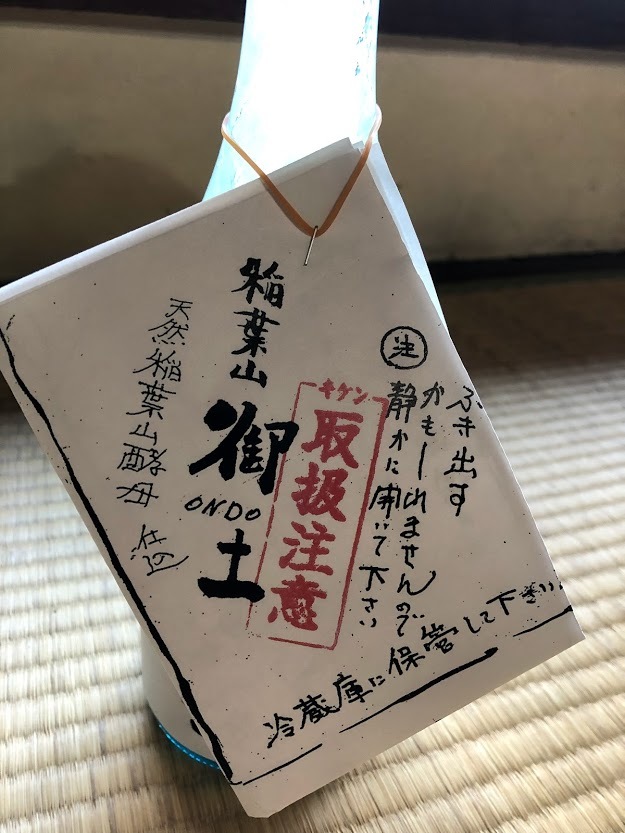 注
ふき出す
かもしれませんので
静かに開いて下さい
キケン
取扱注意
稲葉山
御
ONDO
土
天然稲葉山酵母 仕込
冷蔵庫に保管して下さい